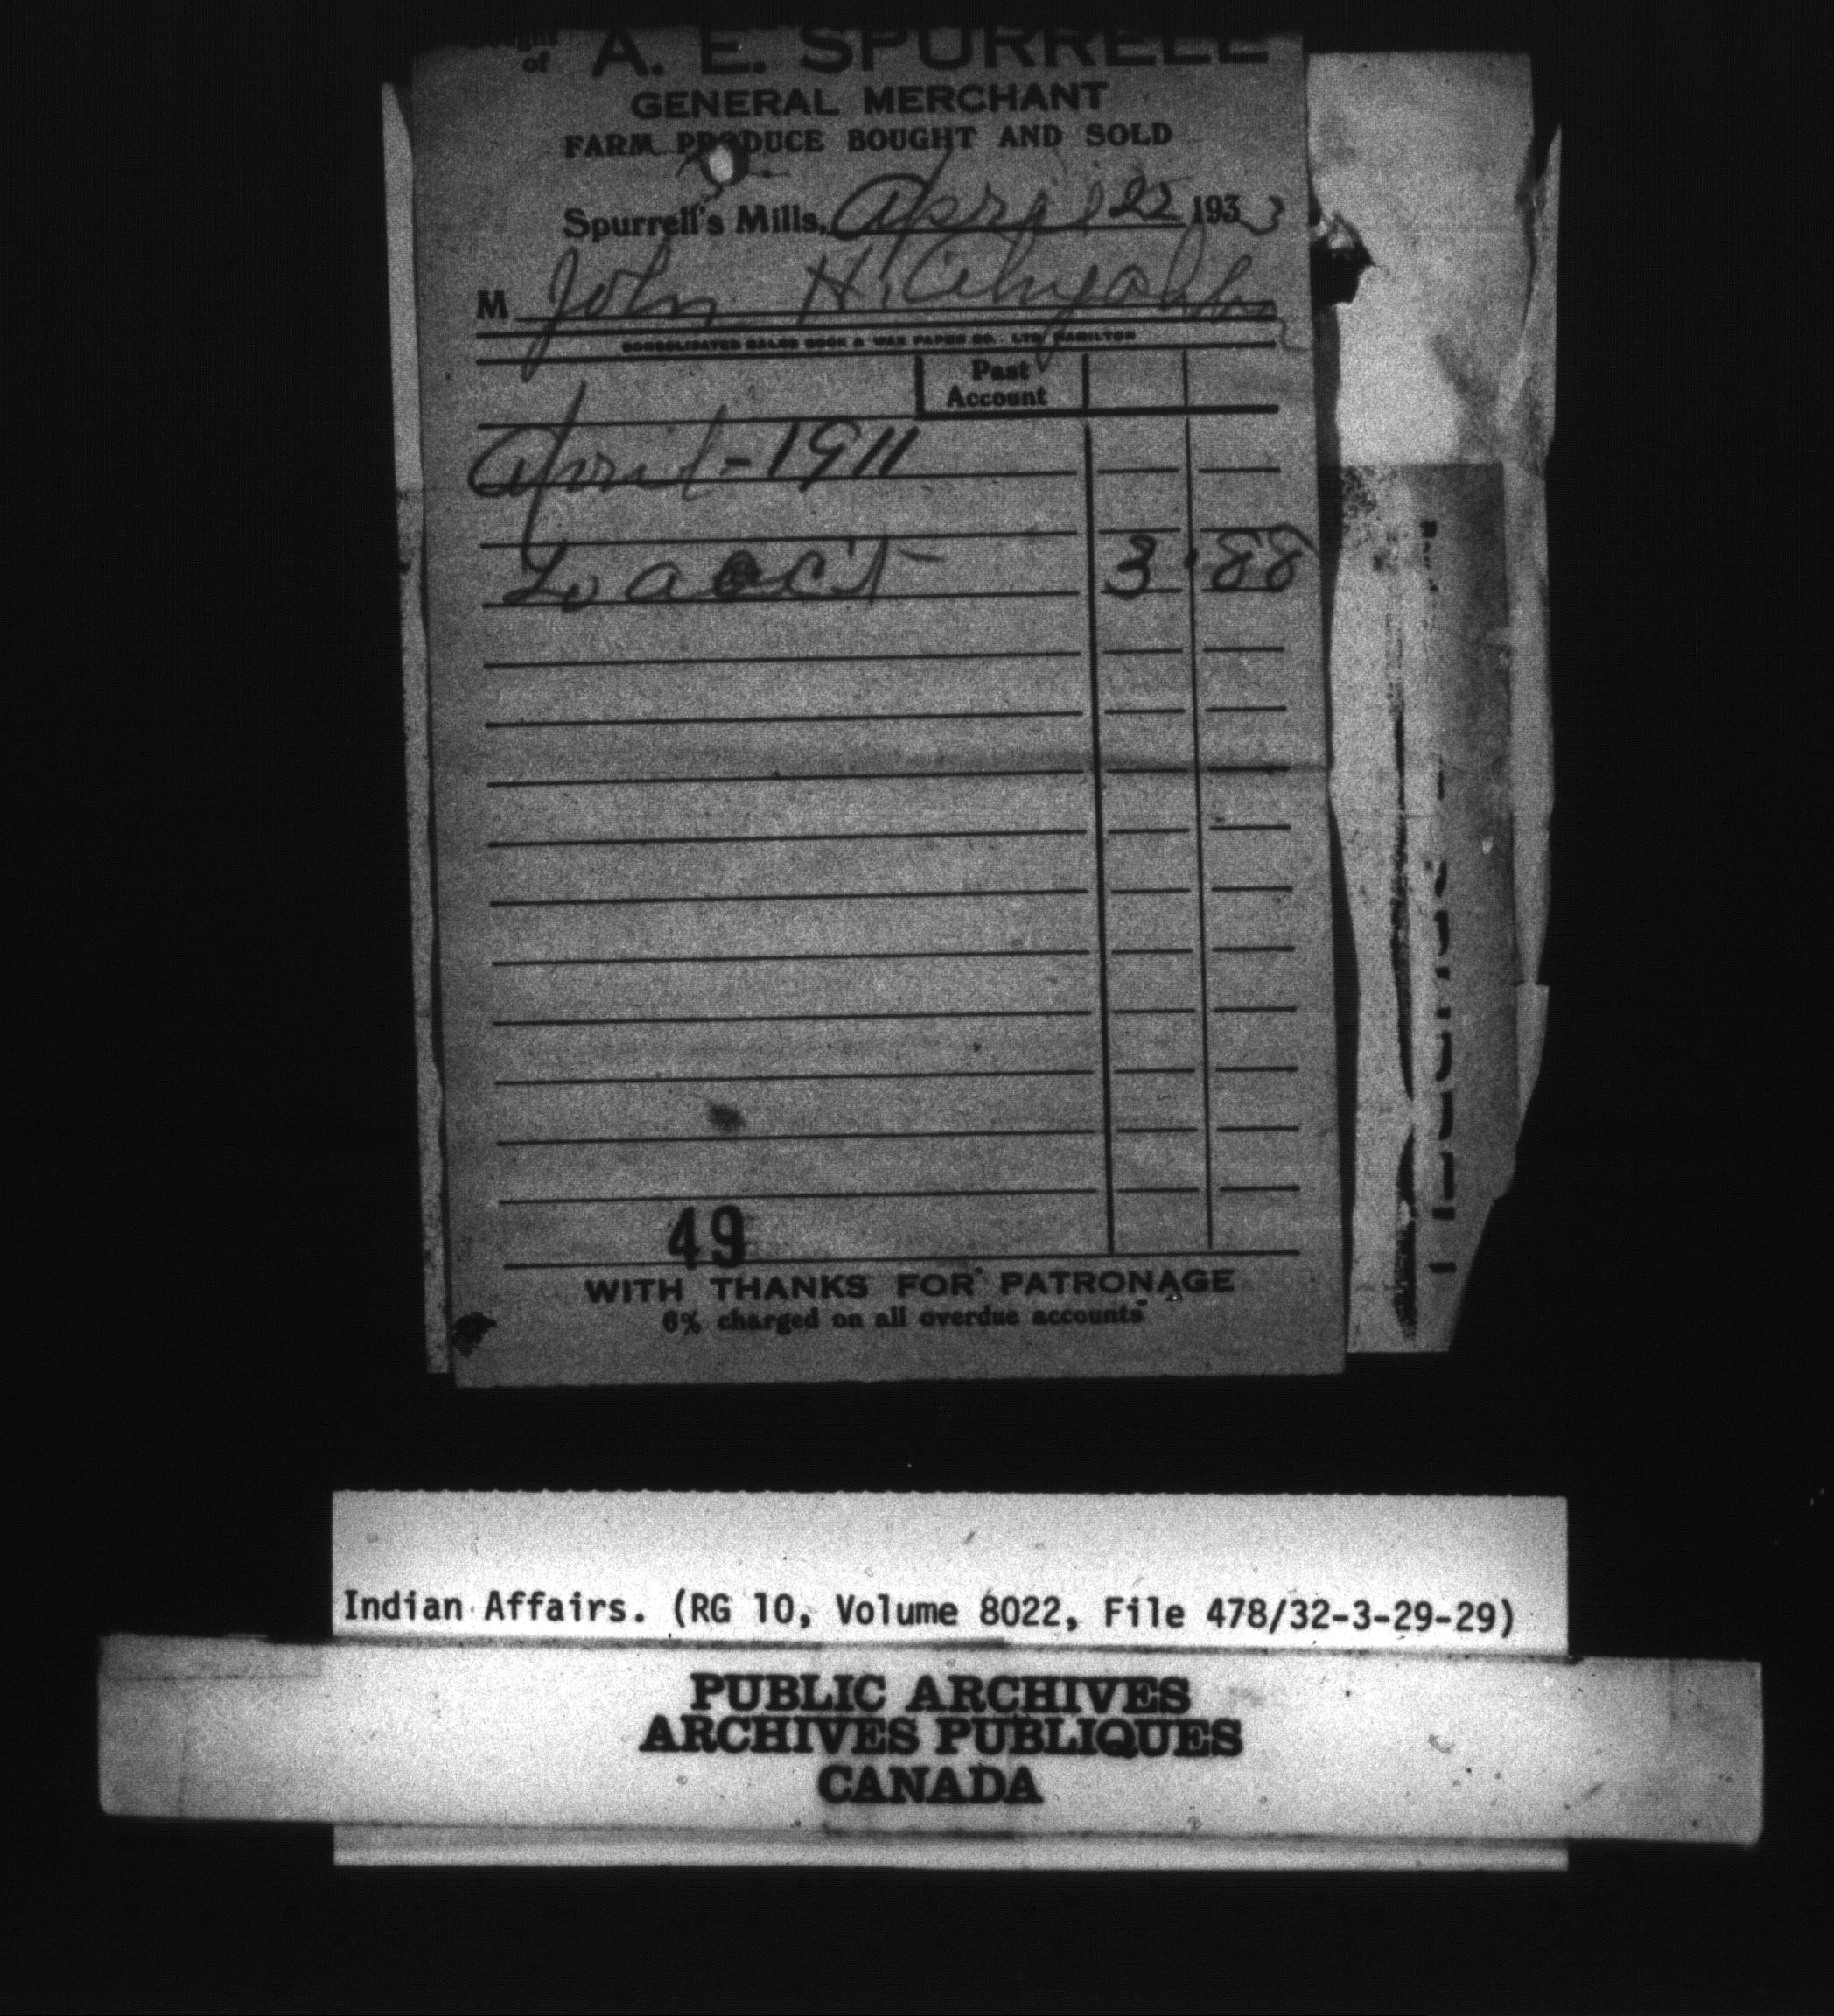 of A. E. SPURRELL
GENERAL MERCHANT
FARM PRODUCE BOUGHT AND SOLD
Spurrell's Mills, April 25 1933
M John H.
CONSOLIDATED SALES BOOK & WAX PAPER CO. LTD. HAMILTON
Past
Account
April - 1911
To acct - 3.88
49
WITH THANKS FOR PATRONAGE
6% charged on all overdue accounts
Indian Affairs. (RG 10, Volume 8022, File 478/32-3-29-29)
PUBLIC ARCHIVES
ARCHIVES PUBLIQUES
CANADA